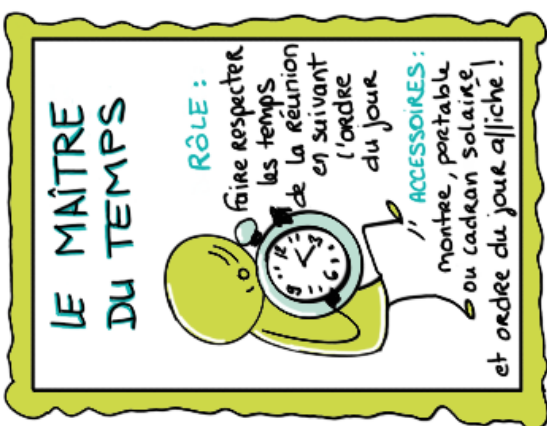 LE MAÎTRE
DU TEMPS
RÔLE :
Faire respecter
les temps
de la réunion
en suivant
l'ordre
du jour
12
3
6
9
ACCESSOIRES :
montre, portable
ou cadran solaire,
et ordre du jour affiché !